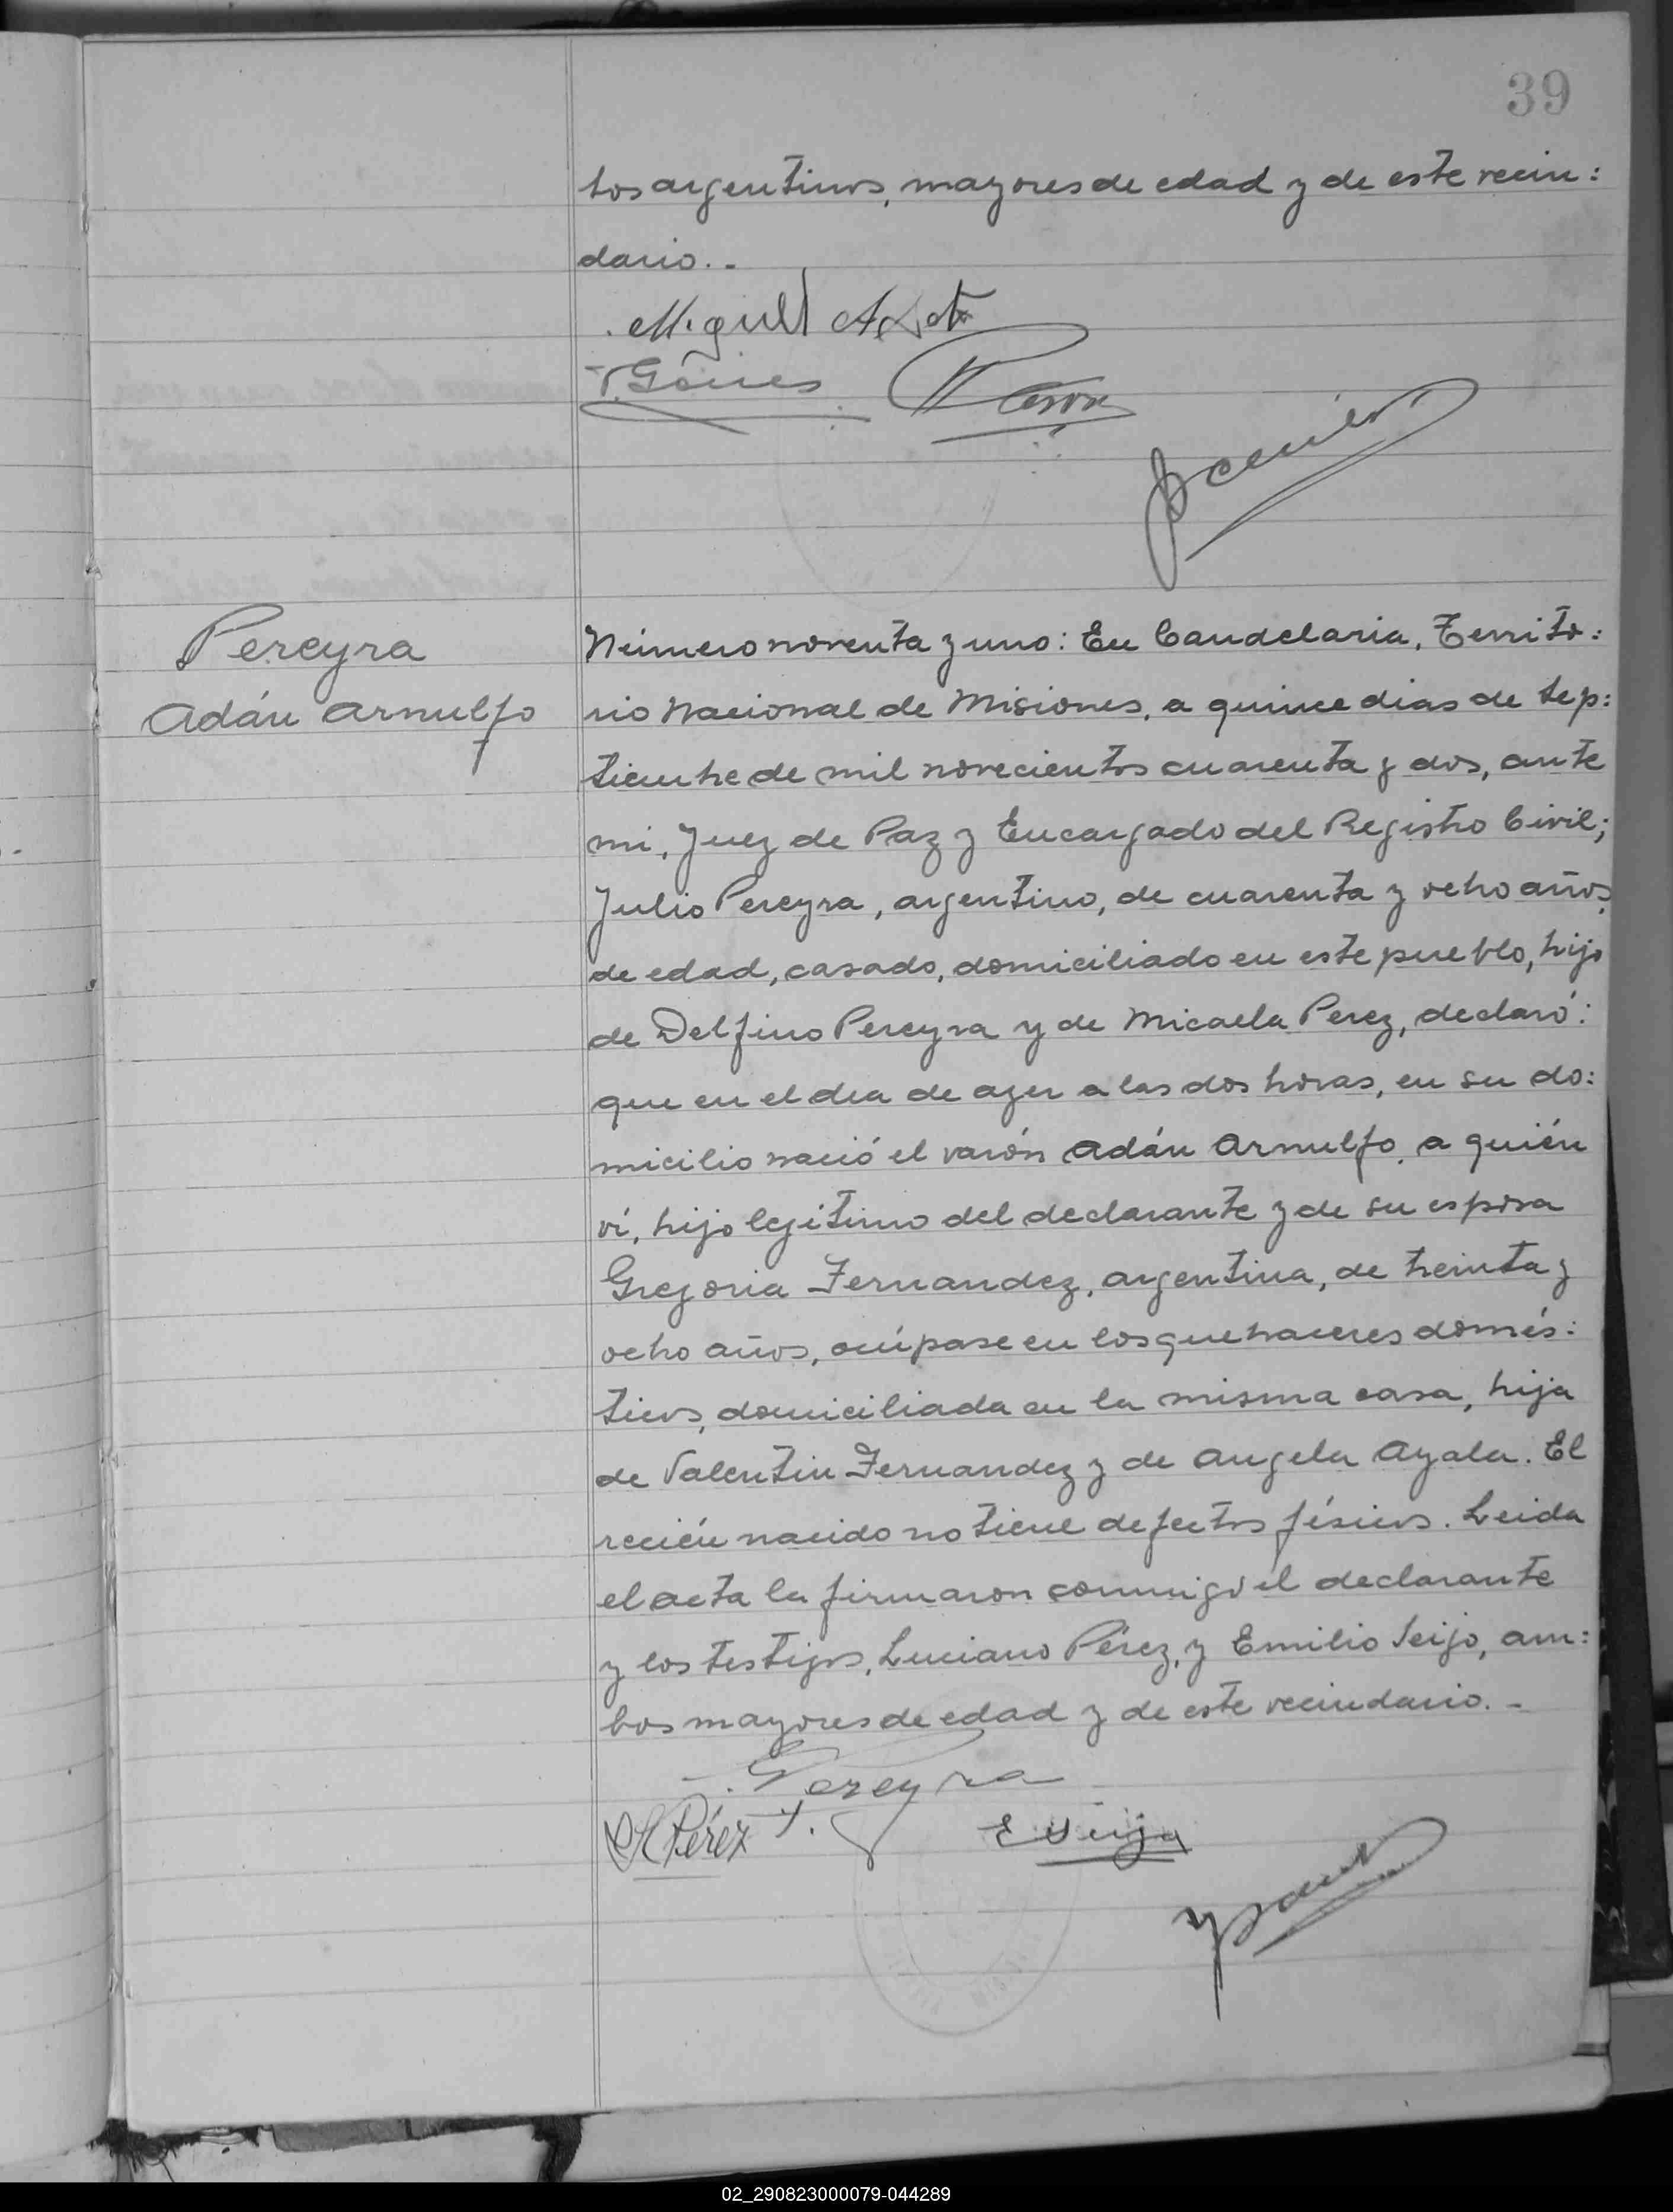 39
bos argentinos, mayores de edad y de este vecin:
dario. -
Miguel
Pereyra
Adán Arnulfo
Número noventa y uno: En Candelaria, Territo:
rio Nacional de Misiones, a quince dias de Sep:
tiembre de mil novecientos cuarenta y dos, ante
mi, Juez de Paz y Encargado del Registro Civil;
Julio Pereyra, argentino, de cuarenta y ocho años
de edad, casado, domiciliado en este pueblo, hijo
de Delfino Pereyra y de Micaela Perez, declaró:
que en el dia de ayer a las dos horas, en su do:
micilio nació el varón Adán Arnulfo, a quién
ví, hijo legítimo del declarante y de su esposa
Gregoria Fernandez, argentina, de treinta y
ocho años, ocúpase en los quehaceres domés:
ticos, domiciliada en la misma casa, hija
de Valentin Fernandez y de Angela Ayala. El
recién nacido no tiene defectos físicos. Leida
el acta la firmaron conmigo el declarante
y los testigos, Luciano Pérez, y Emilio Seijo, am:
bos mayores de edad y de este vecindario. -
Pereyra
Pérez
E Seijo
02_290823000079-044289